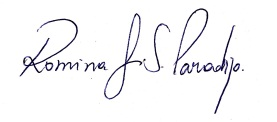 Romina J. S. Paradizo.